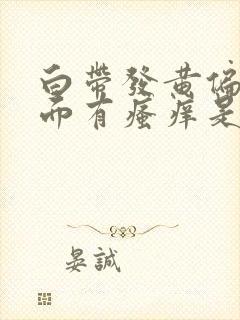 白帶發黃偏
而有瘙痒是
晏誠